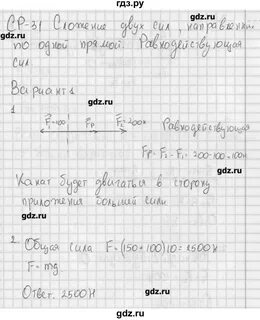 гдз.ру
СР-31 Сложение двух сил, направлен.
по одной прямой. Равнодействующая
сил.
Вариант 1
1
F₁=100 Fр F₂=200н Равнодействующая
Fр=F₂-F₁=200-100=100н
Канат будет двигаться в сторону
приложения большей силы.
2. Общая сила F=(150+100)10=2500Н
F=mg
Ответ: 2500Н
gdz.ru